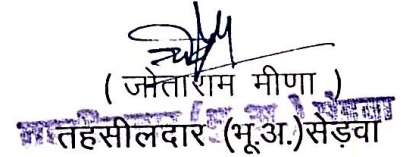 ( जोताराम मीणा )
तहसीलदार (भू.अ.)सेड़वा